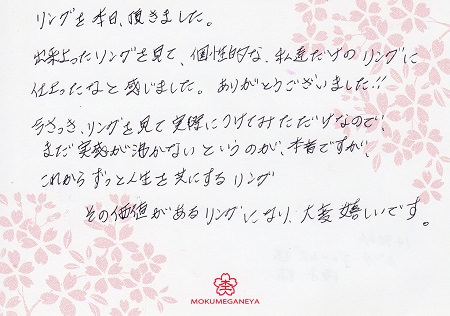 リングを本日、頂きました。
出来上ったリングを見て、個性的な、私達だけのリングに
仕上ったなと感じました。ありがとうございました!!
今さっき、リングを見て実際につけてみただけなので、
まだ実感が沸かないというのが、本音ですが、
これからずっと人生を共にするリング
その価値があるリングになり、大変嬉しいです。
MOKUMEGANEYA